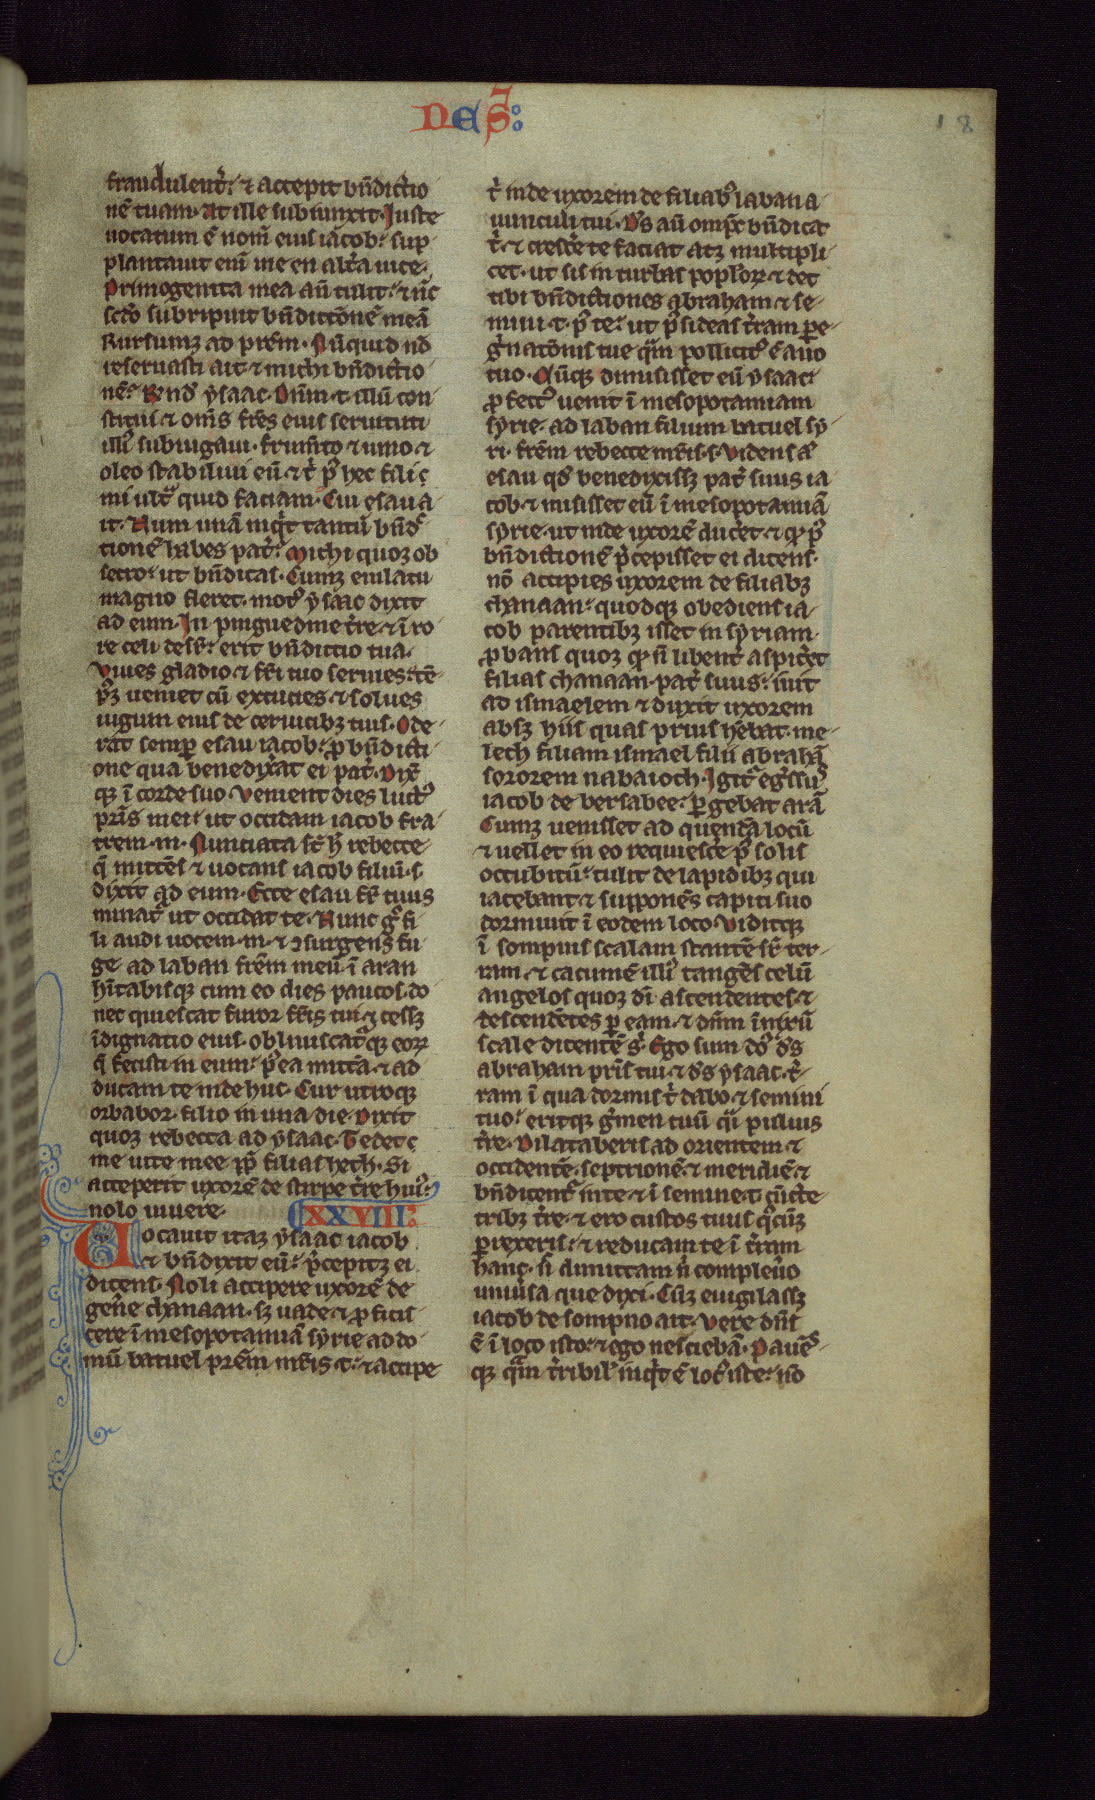 DES:
18
fraudulent̾: ⁊ accepit bn̄dictio
nē tuam. At ille subiunxit. Juste
uocatum ē nom̄ eius iacob: sup
plantauit eni᷒ me en alt̾a uice.
Primogenita mea an̄ tulit: ⁊ nc̄
scd̾o subripuit bn̄dictōnē meā
Rursumqꝫ ad prēm. Nūquid nō
reseruasti ait ⁊ michi bn̄dictio
nē: Rn̄d̾ ysaac. Dn̄m. t. illū con
stitui ⁊ om̄s fr̄es eius seruituti
illi᷒ subiugaui. frum̄to ⁊ uino ⁊
oleo stabiliui eū ⁊ t̾ p᷒ hec fili
mi ult᷒ quid faciam. Cui esau a
it. Num unā inqt̾ tantū bn̄d
tionē habes pat̾: Michi quoqꝫ ob
secro: ut bn̄dicas. Cumqꝫ eiulatu
magno fleret. mot᷒ ysaac dixit
ad eum. In pinguedine t̾re ⁊ ī ro
re celi desr̄: erit bn̄dictio tua.
Viues gladio ⁊ fr̄i tuo seruies: tē
p᷒qꝫ ueniet cū excucies ⁊ solues
iugum eius de ceruicibꝫ tuis. Ode
rat semꝑ esau iacob: ꝓ bn̄dicti
one qua benedix̾at ei pat̾. Dix̾
qꝫ ī corde suo. Venient dies luct᷒
pr̄is mei: ut occidam iacob fra
trem. m. Nunciata st̄ h᷒ rebecce
q̄ mittēs ⁊ uocans iacob filiū. s.
dixit ad eum. Ecce esau fr̄ tuus
minat᷒ ut occidat te. Nunc g᷒ fi
li audi uocem. m. ⁊ ꝯsurgens fu
ge ad laban fr̄em meū ī aran
hītabisqꝫ cum eo dies paucos. do
nec quiescat furor fr̄is tui ⁊ cessꝫ
īdignatio eius. obliuiscat᷒qꝫ eoꝝ
q̄ fecisti in eum: p᷒ea mittā ⁊ ad
ducam te inde huc. Cur utroqꝫ
orbabor. filio in una die. Dixit
quoqꝫ rebecca ad ysaac. Tedet
me uite mee pp̄ filias heth. Si
acceperit uxorē de stirpe t̾re hui᷒:
nolo uiuere. XXVIII:
Uocauit itaqꝫ ysaac iacob
⁊ bn̄dixit eū: p̄cepitqꝫ ei
dicens. Noli accipere uxorē de
gen̾e chanaan. sꝫ uade ⁊ ꝓficis
cere ī mesopotamiā syrie ad do
mū batuel prēm mr̄is. t: ⁊ accipe
t̾ inde uxorem de filiab᷒ laban a
uunculi tui. Ds̄ aū omp̄s bn̄dicat
t̾. ⁊ cresc̾e te faciat atqꝫ multipli
cet. ut sis in turbas poploꝝ ⁊ det
tibi bn̄dictiones abraham ⁊ se
mini. t. p᷒ te: ut p᷒sideas t̾ram pe
g̾natōnis tue qm̄ pollicit᷒ ē auo
tuo. Cūqꝫ dimisisset eū ysaac:
ꝓfect᷒ uenit ī mesopotamiam
syrie. ad laban filium batuel sy
ri. fr̄em rebecce mr̄is. s. Videns a᷒
esau qd̾ benedixissꝫ pat̾ suus ia
cob ⁊ misisset eū ī mesopotamiā
syrie. ut inde uxorē duc̾et ⁊ qꝫ p᷒
bn̄dictionē p̄cepisset ei dicens.
nō accipies uxorem de filiabꝫ
chanaan: quodqꝫ obediens ia
cob parentibꝫ isset in syriam.
ꝓbans quoqꝫ qꝫ n̄ libent̾ aspic̾et
filias chanaan. pat̾ suus: iuit
ad ismaelem ⁊ duxit uxorem
absqꝫ hiis quas prius h̄ebat. me
lech filiam ismael filii abrahā
sororem nabaioch. Igit᷒ eg̾ssus
iacob de bersabee: ꝑgebat arā
Cumqꝫ uenisset ad quendā locū
⁊ uellet in eo requiesc̾e p᷒ solis
occubitū: tulit de lapidibꝫ qui
iacebant ⁊ supponēs capiti suo
dormiuit ī eodem loco. Viditqꝫ
ī sompnis scalam stantē sr̄ ter
ram. ⁊ cacumē illi᷒ tangēs celū
angelos quoqꝫ di᷒ ascendentes. ⁊
descendētes ꝑ eam. ⁊ dn̄m īnixū
scale dicentē s᷒. Ego sum do᷒ ds̄
abraham pr̄is tui. ⁊ ds̄ ysaac. t̾
ram ī qua dormis t̾ dabo ⁊ semini
tuo: eritqꝫ g̾men tuū qi᷒ puluis
t̾re. Dilataberis ad orientem ⁊
occidentē. septrionē ⁊ meridiē ⁊
bn̄dicent᷒ in te. ⁊ ī semine. t. cūcte
tribꝫ t̾re. ⁊ ero custos tuus q̊cūqꝫ
ꝑrexeris: ⁊ reducam te ī t̾ram
hanc. n̄ dimittam n̾ compleu̾o
uniu̾sa que dixi. Cūqꝫ euigilassꝫ
iacob de sompno ait. Vere dn̄s
ē ī loco isto: ⁊ ego nesciebā. Pauēs
qꝫ qm̄ t̾ribil᷒ inqt̾ ē loc᷒ iste: nō